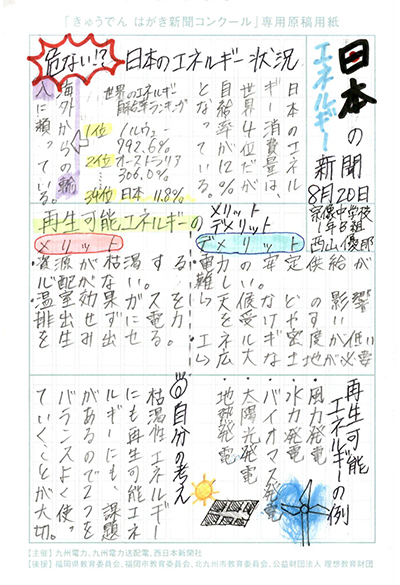 「きゅうでん はがき新聞コンクール」専用原稿用紙
日本の
エネルギー
新聞
8月20日
宗像中学校
1年B組
西山優郎
危ない!? 日本のエネルギー状況
日本のエネル
ギー消費量は、
世界4位だが、
自給率が12%
となっている。
世界のエネルギー
自給率ランキング
1位 ノルウェー
792.6%
2位 オーストラリア
306.0%
34位 日本 11.8%
海外からの輸
入に頼っている
再生可能エネルギーの
メリット
デメリット
メリット
・資源が枯渇する
心配がない。
・温室効果ガスを
排出せずに電力
を生み出せる。
デメリット
・電力の安定供給が
難しい。
↳天候などの影響
を受けやすい
・エネルギー密度が低い
↳広大な土地が必要
再生可能
エネルギーの例
・風力発電
・水力発電
・バイオマス発電
・太陽光発電
・地熱発電
◎自分の考え
枯渇性エネルギー
にも再生可能エネ
ルギーにも、課題
があるので2つを
バランスよく使っ
ていくことが大切。
【主催】九州電力、九州電力送配電、西日本新聞社
【後援】福岡県教育委員会、福岡市教育委員会、北九州市教育委員会、公益財団法人 理想教育財団